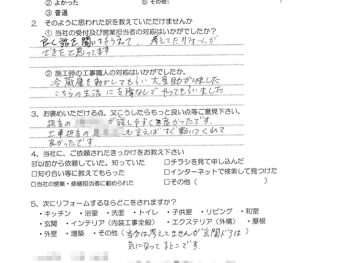 ② よかった ⑤ その他(
③ 普通
2. そのように思われた訳を教えていただけませんか
① 当社の受付及び営業担当者の対応はいかがでしたか?
良く話を聞いてもらえて、考えてたリフォームが
できたと思ってます
② 施工時の工事職人の対応はいかがでしたか?
冷蔵庫を動かしてもらい大変助かりました
こちらの生活に支障なしでやってもらいました
3、お褒めいただける点、又こうしたらもっと良い点等ご意見下さい。
担当の が話しやすく良かったです。
工事担当の も言えばすぐ動いてくれて
良かったです。
4、当社に、ご依頼されたきっかけをお教え下さい
☑以前から依頼していた。知っていた □チラシを見て申し込んだ
□知り合い等に教えてもらった □インターネットで検索して見つけた
□当社の営業・修繕担当者に勧められた □その他( )
5、次にリフォームするならどこをされますか?
・キッチン ・浴室 ・洗面 ・トイレ ・子供室 ・リビング ・和室
・玄関 ・インテリア(内装工事全般) ・エクステリア(外構) ・屋根
・外壁 ・増築 ・その他(当分は考えてませんが玄関ドアは)
気になってるところです。